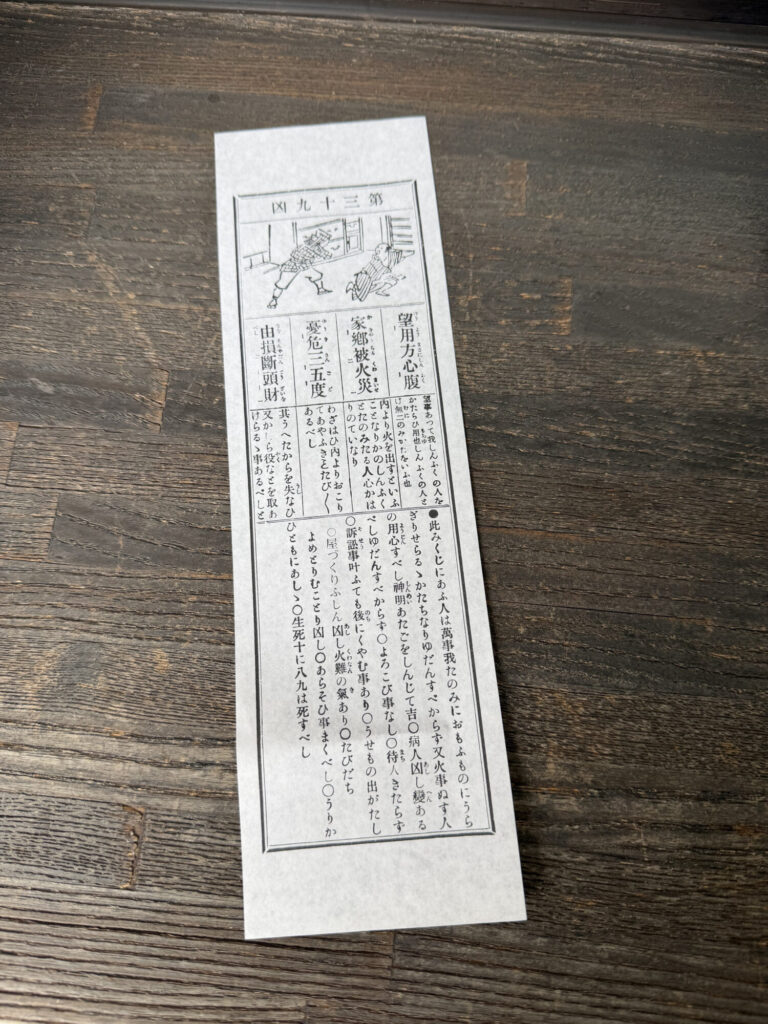 第三十九凶
望用方心腹
家鄉被火災
憂危三五度
由損斷頭財
望事あつて我しんふくの人を
かたらひ用也しんふくの人と
け無二のみかたをいふ也
内より火を出すといふ
ことなりかのしんふく
とたのみたる人心かは
りのていなり
わざはひ内よりおこり
てあやふきこたび〱
あるべし
其うへたからを失なひ
又かしら役などを取あ
けらるゝ事あるべしと
●此みくじにあふ人は萬事我たのみにおもふものにうら
ぎりせらるゝかたちなりゆだんすべからず又火事ぬす人
の用心すべし神明あたごをしんじて吉〇病人凶し變ある
べしゆだんすべからず〇よろこび事なし〇待人きたらず
〇訴訟事叶ふても後にくやむ事あり〇うせもの出がたし
〇屋づくりふしん凶し火難の氣あり〇たびだち
よめとりむことり凶し〇あらそひ事まくべし〇うりか
ひともにあしゝ〇生死十に八九は死すべし